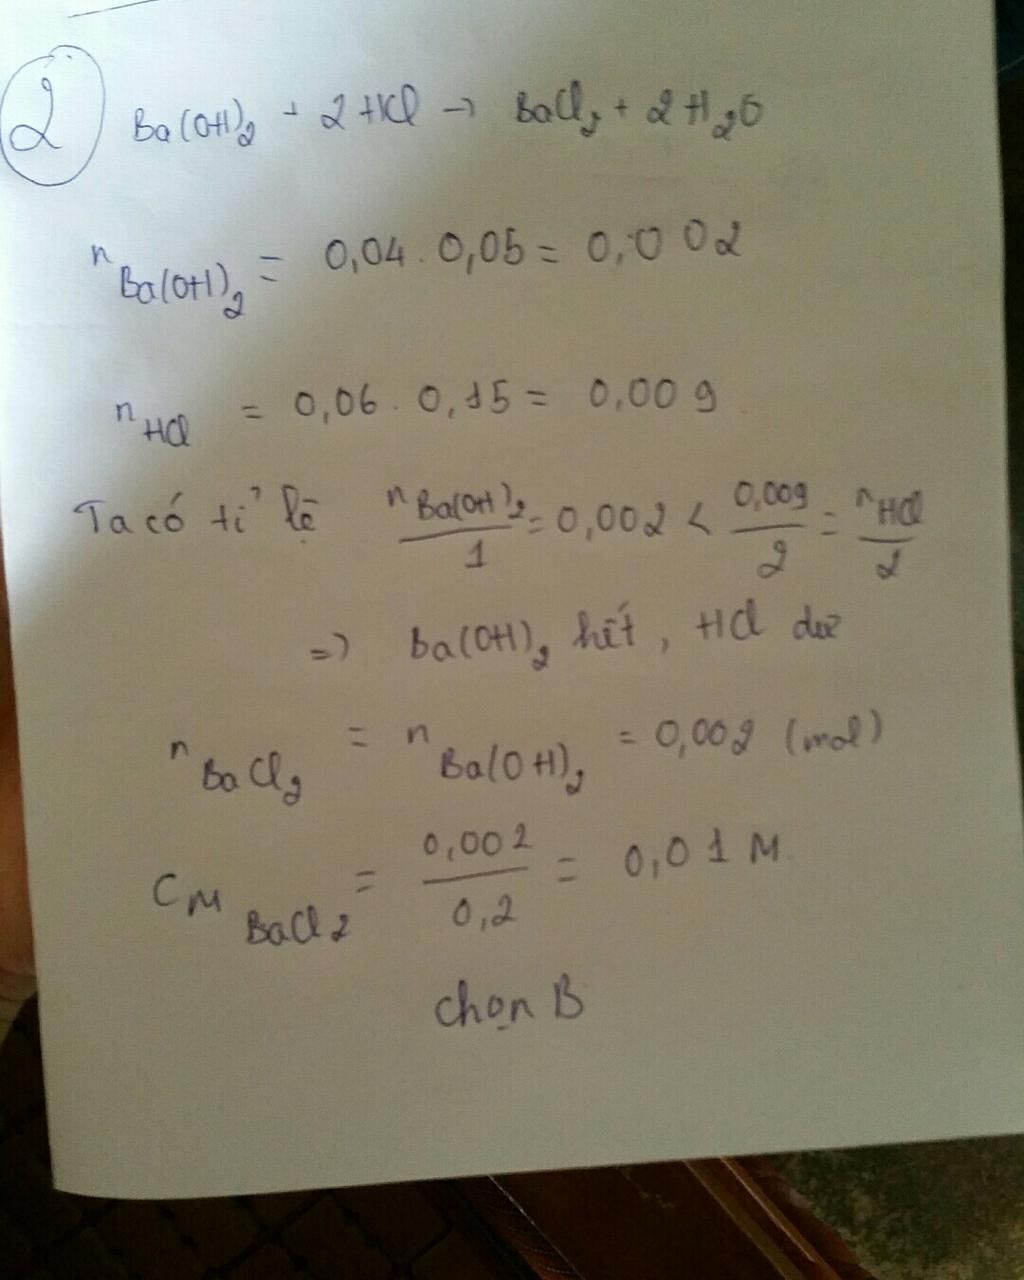 2 Ba(OH)₂ + 2HCl → BaCl₂ + 2H₂O
n Ba(OH)₂ = 0,04 . 0,05 = 0,002
n HCl = 0,06 . 0,15 = 0,009
Ta có tỉ lệ n Ba(OH)₂/1 = 0,002 < 0,009/2 = n HCl/2
=> Ba(OH)₂ hết, HCl dư
n BaCl₂ = n Ba(OH)₂ = 0,002 (mol)
CM BaCl₂ = 0,002/0,2 = 0,01 M.
chọn B